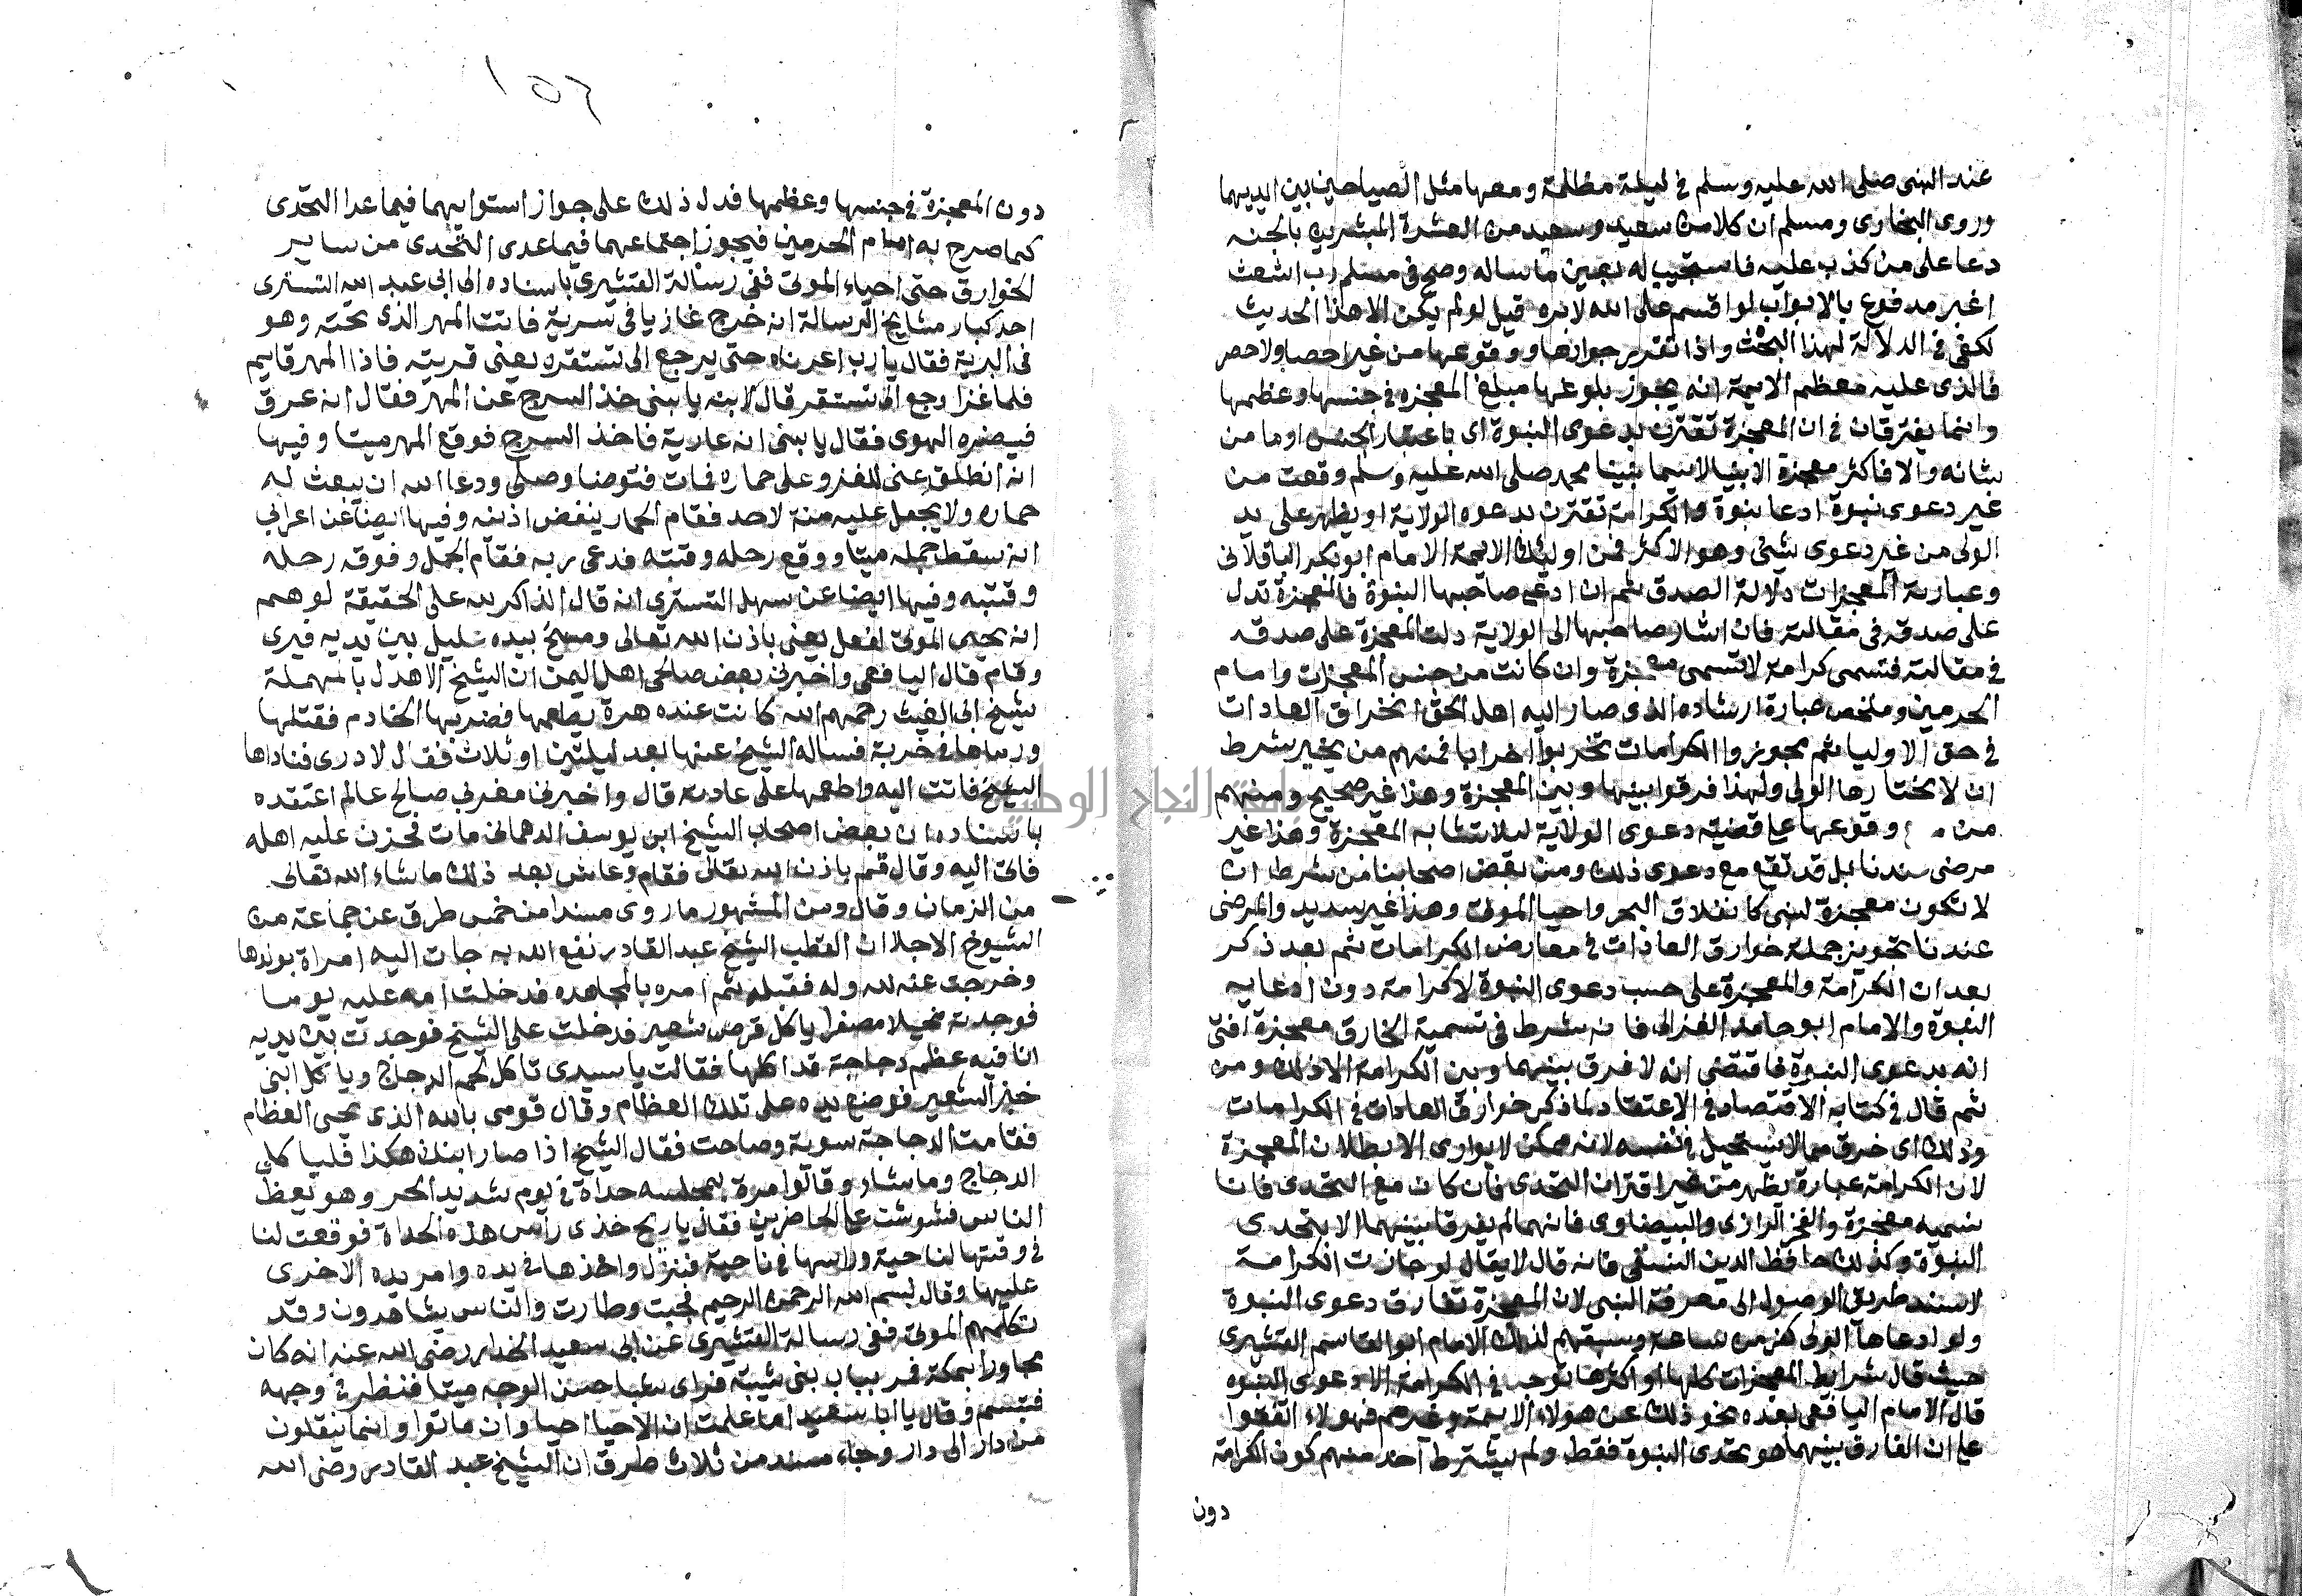 عند النبى صلى الله عليه وسلم فى ليلة مظلمة ومعها مثل المصباحين بين ايديهما
وروى البخارى ومسلم ان كلا من سعد وسعيد من العشرة المبشرين بالجنه
دعا على من كذب عليه فاستجيب له بعين ما ساله وصح فى مسلم رب اشعث
اغبر مدفوع بالابواب لو اقسم على الله لابره قيل لو لم يكن الا هذا الحديث
لكفى فى الدلالة لهذا البحث واذا تقرر جوازها ووقوعها من غير احصا ولا حصر
فالذى عليه معظم الايمة انه يجوز بلوغها مبلغ المعجزه فى جنسها وعظمها
وانما يفترقان فى ان المعجزة تقترن بدعوى النبوة اى باعتبار الجنس او ما من
شانه والا فاكثر معجزة الانبيا لاسيما نبينا محمد صلى الله عليه وسلم وقعت من
غير دعوى نبوة ادعا نبوة والكرامة تقترن بدعوه الولاية او يظهر على يد
الولى من غير دعوى شئ وهو الاكثر فمن اوليك الايمة الامام ابو بكر الباقلانى
وعبارته المعجزات دلالة الصدق ثم ان ادعى صاحبها النبوة فالمعجزة تدل
على صدقه فى مقالته فان اشار صاحبها الى الولاية دلت المعجزة على صدقه
فى مقالته فتسمى كرامة لا تسمى معجزة وان كانت من جنس المعجزات وامام
الحرمين وملخص عبارة ارشاده الذى صار اليه اهل الحق انخراق العادات
فى حق الاوليا ثم مجوزوا الكرامات تحزبوا احزابا فمنهم من يخير بشرط
ان لا يختارها الولى ولهذا فرقوا بينها وبين المعجزة وهذا غير صحيح ومنهم
من وقوعها على قضية دعوى الولاية ليلا تشابه المعجزة وهذا غير
مرضى عندنا بل قد تقع مع دعوى ذلك ومن بعض اصحابنا من شرط ان
لا تكون معجزة لنبى كانفلاق البحر واحيا الموتى وهذا غير سديد والمرضى
عندنا تجويز جملة خوارق العادات فى معارض الكرامات ثم بعد ذكر
بعد ان الكرامة والمعجزة على حسب دعوى النبوة لا كرامة دون ادعايه
النبوة والامام ابو حامد الغزالى فانه شرط فى تسمية الخارق معجزة اقتران
انه بدعوى النبوة فاقتضى انه لا فرق بينهما وبين الكرامة الا ذلك ومن
ثم قال فى كتابه الاقتصاد فى الاعتقاد لما ذكر خوارق العادات فى الكرامات
وذلك اى خرق مما لا يستحيل فى نفسه لانه ممكن لا يوارى الا بطلان المعجزة
لان الكرامة عبارة يظهر من غير اقتران التحدى فان كان مع التحدى فانا
نسميه معجزة والفخر الرازى والبيضاوى فانهما لم يفرقا بينهما الا بتحدى
النبوة وكذلك حافظ الدين النسفى فانه قال لا يقال لو جازت الكرامة
لانسد طريق الوصول الى معرفة النبى لان المعجزة تفارق دعوى النبوة
ولو ادعاها الولى كفر من ساعته وسبقهم لذلك الامام ابو القاسم القشيرى
حيث قال شرايط المعجزات كلها او اكثرها توجد فى الكرامة الا دعوى النبوه
قال الامام اليافعى بعده نحو ذلك عن هولاء الايمة وغيرهم فهولاء اتفقوا
على ان الفارق بينهما هو تحدى النبوة فقط ولم يشترط احد منهم كون الكرامة
دون
١٥٦
دون المعجزة فى جنسها وعظمها فدل ذلك على جواز استوايهما فيما عدا التحدى
كما صرح به امام الحرمين فيجوز اجتماعهما فيما عدى التحدى من ساير
الخوارق حتى احياء الموتى ففى رسالة القشيرى باسناده الى ابى عبد الله التسترى
احد كبار مشايخ الرسالة انه خرج غازيا فى سرية فانت المهر الذى تحته وهو
فى البرية فقال يا رب اعرناه حتى يرجع الى تستقره يعنى قريته فاذا المهر قايم
فلما غزا رجع الى تستقر قال لابنه يا بنى خذ السرج عن المهر فقال انه عرق
فيضره الهوى فقال يا بنى انه عارية فاخذ السرج فوقع المهر ميتا وفيها
انه انطلق عنى للغزو على حماره فمات فتوضا وصلى ودعا الله ان يبعث له
حماره ولا يجعل عليه منة لاحد فقام الحمار ينفض اذنيه وفيها ايضا عن اعرابى
انه سقط جمله ميتا ووقع رحله وقتبه فدعى ربه فقام الجمل وفوقه رحله
وقتبه وفيها ايضا عن سهل التسترى انه قال الذاكر لله على الحقيقة لو هم
انه يحيى الموتى لفعل يعنى باذن الله تعالى ومسح بيده عليل بين يديه فبرى
وقام قال اليافعى واخبرنى بعض صالحى اهل اليمن ان الشيخ الاهدل بالمهملة
شيخ ابى الغيث رحمهم الله كانت عنده هرة يطعمها فضربها الخادم فقتلها
ورماها فى خربة فساله الشيخ عنها بعد ليلتين او ثلاث فقال لا درى فناداها
الشيخ فاتت اليه واطعمها على عادته قال واخبرنى مغربى صالح عالم اعتقده
باسناده ان بعض اصحاب الشيخ ابن يوسف الدهمانى مات فحزن عليه اهله
فاتى اليه وقال قم باذن الله تعالى فقام وعاش بعد ذلك ما شاء الله تعالى
من الزمان وقال ومن المشهور ما روى مسندا من خمس طرق عن جماعة من
الشيوخ الاجلا ان القطب الشيخ عبد القادر نفع الله به جات اليه امراة بولدها
وخرجت عنه لله وله فقبله ثم امره بالمجاهده فدخلت امه عليه يوما
فوجدته نحيلا مصفرا ياكل قرص شعير فدخلت على الشيخ فوجدت بين يديه
انا فيه عظم دجاجة قد اكلها فقالت يا سيدى تاكل لحم الدجاج وياكل ابنى
خبز الشعير فوضع يده على تلك العظام وقال قومى بالله الذى يحيى العظام
فقامت الدجاجة سوية وصاحت فقال الشيخ اذا صار ابنك هكذا فلياكل
الدجاج وما شاء وقالوا مرة بمجلسه حداة فى يوم شديد الحر وهو يعظ
الناس فشوشت على الحاضرين فقال يا ريح خذى راس هذه الحداة فوقعت لنا
فى وقتها لناحية وراسها فى ناحية فنزل واخذها فى يده وامر يده الاخرى
عليها وقال بسم الله الرحمن الرحيم فحيت وطارت والناس يشاهدون وقد
تكلمهم الموتى ففى رسالة القشيرى عن ابى سعيد الخراز رضى الله عنه انه كان
مجاورا بمكة فمر بباب بنى شيبة فراى شابا حسن الوجه ميتا فنظر فى وجهه
فتبسم وقال يا ابا سعيد اما علمت ان الاحيا احيا وان ماتوا وانما ينقلون
من دار الى دار وجاء مسند من ثلاث طرق ان الشيخ عبد القادر رضى الله
جامعة النجاح الوطنية